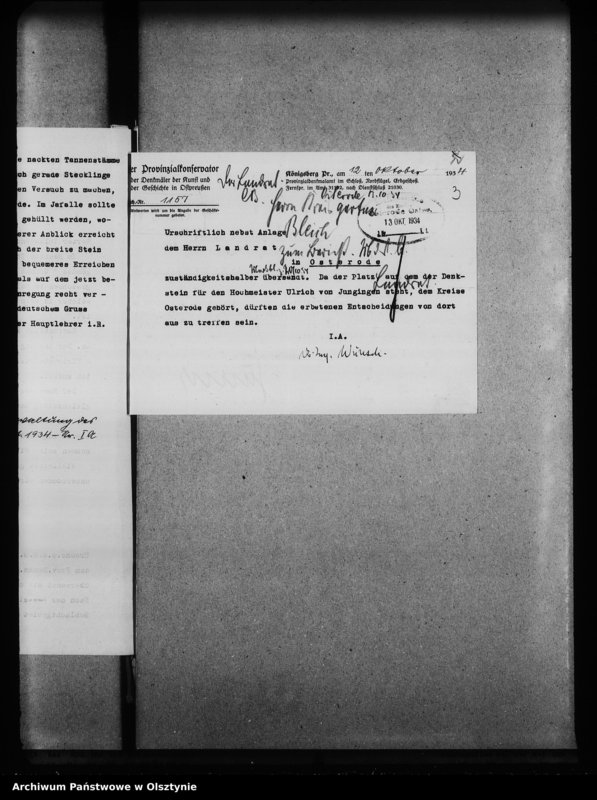 e nackten Tannenstämme
ch gerade Stecklinge
en Versuch zu machen,
de. Im Jafalle sollte
gehüllt werden, wo-
erer Anblick erreicht
h der breite Stein
bequemeres Erreichen
als auf dem jetzt be-
nregung recht ver -
deutschem Gruss
er Hauptlehrer i.R.
1934 – Nr. I a
er Provinzialkonservator
der Denkmäler der Kunst und
der Geschichte in Ostpreußen
1151
Antworten wird um die Angabe der Geschäfts-
nummer gebeten.
Königsberg Pr., am 12 ten Oktober 1934
Provinzialdenkmalamt im Schloß, Nordflügel, Erdgeschoß.
3
Der Landrat
Osterode, 17.10.34
Herrn Kreisgärtner
13. OKT. 1934
Urschriftlich nebst Anlage
dem Herrn Landrat
zum Bericht.
in Osterode
Landrat.
zuständigkeitshalber übersandt. Da der Platz, auf dem der Denk-
stein für den Hochmeister Ulrich von Jungingen steht, dem Kreise
Osterode gehört, dürften die erbetenen Entscheidungen von dort
aus zu treffen sein.
I.A.
Dr. Ing. Wünsch.
Archiwum Państwowe w Olsztynie